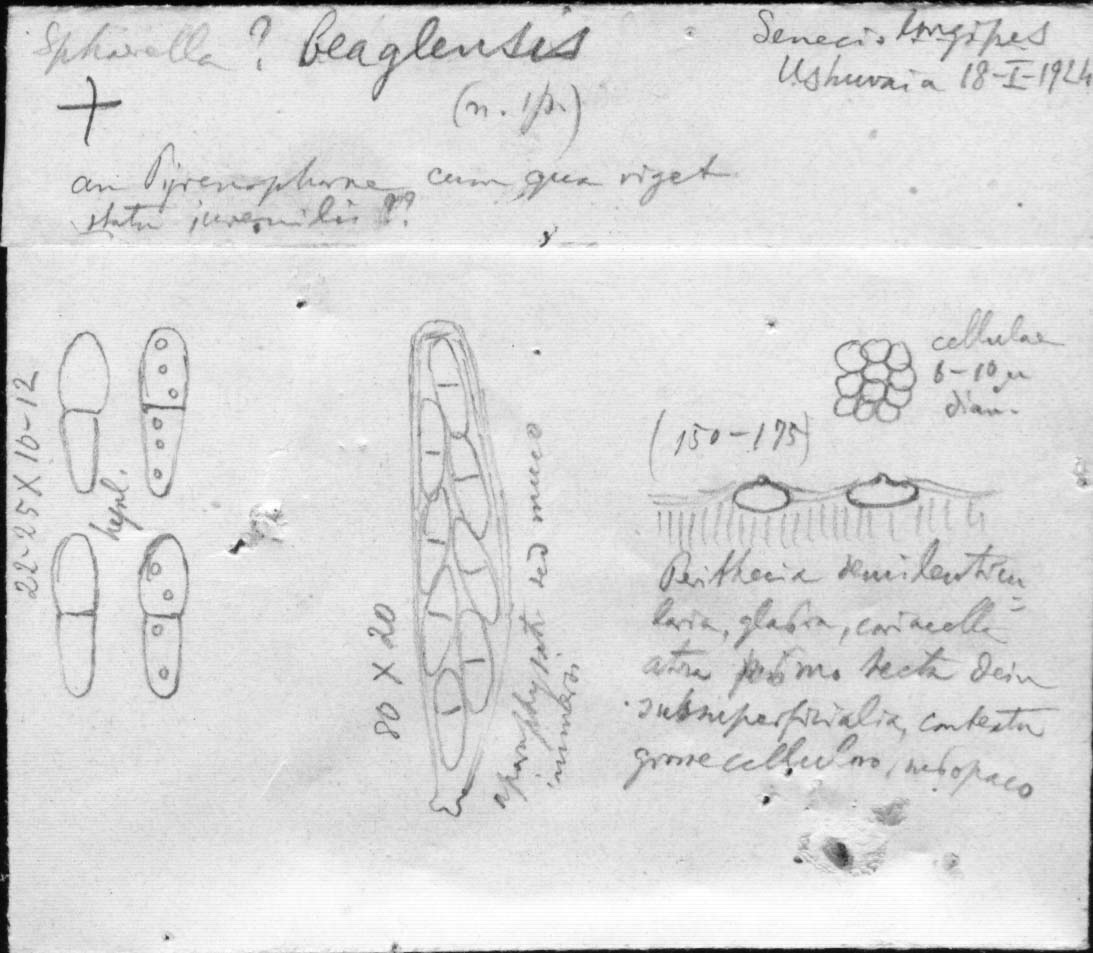 Sphaerella ? beaglensis
Senecio longipes
Ushuvaia 18-I-1924
(n. sp.)
an Pyrenophorae cum qua viget
statu juvenilis ??
22-25 X 10-12
hyal.
80 X 20
aparaphysati sed muco
immersi
cellulae
6-10 µ
diam.
(150-175)
Perithecia semilenticu=
laria, glabra, coriacella
atra primo tecta dein
subsuperficialia, contextu
grosse celluloso,